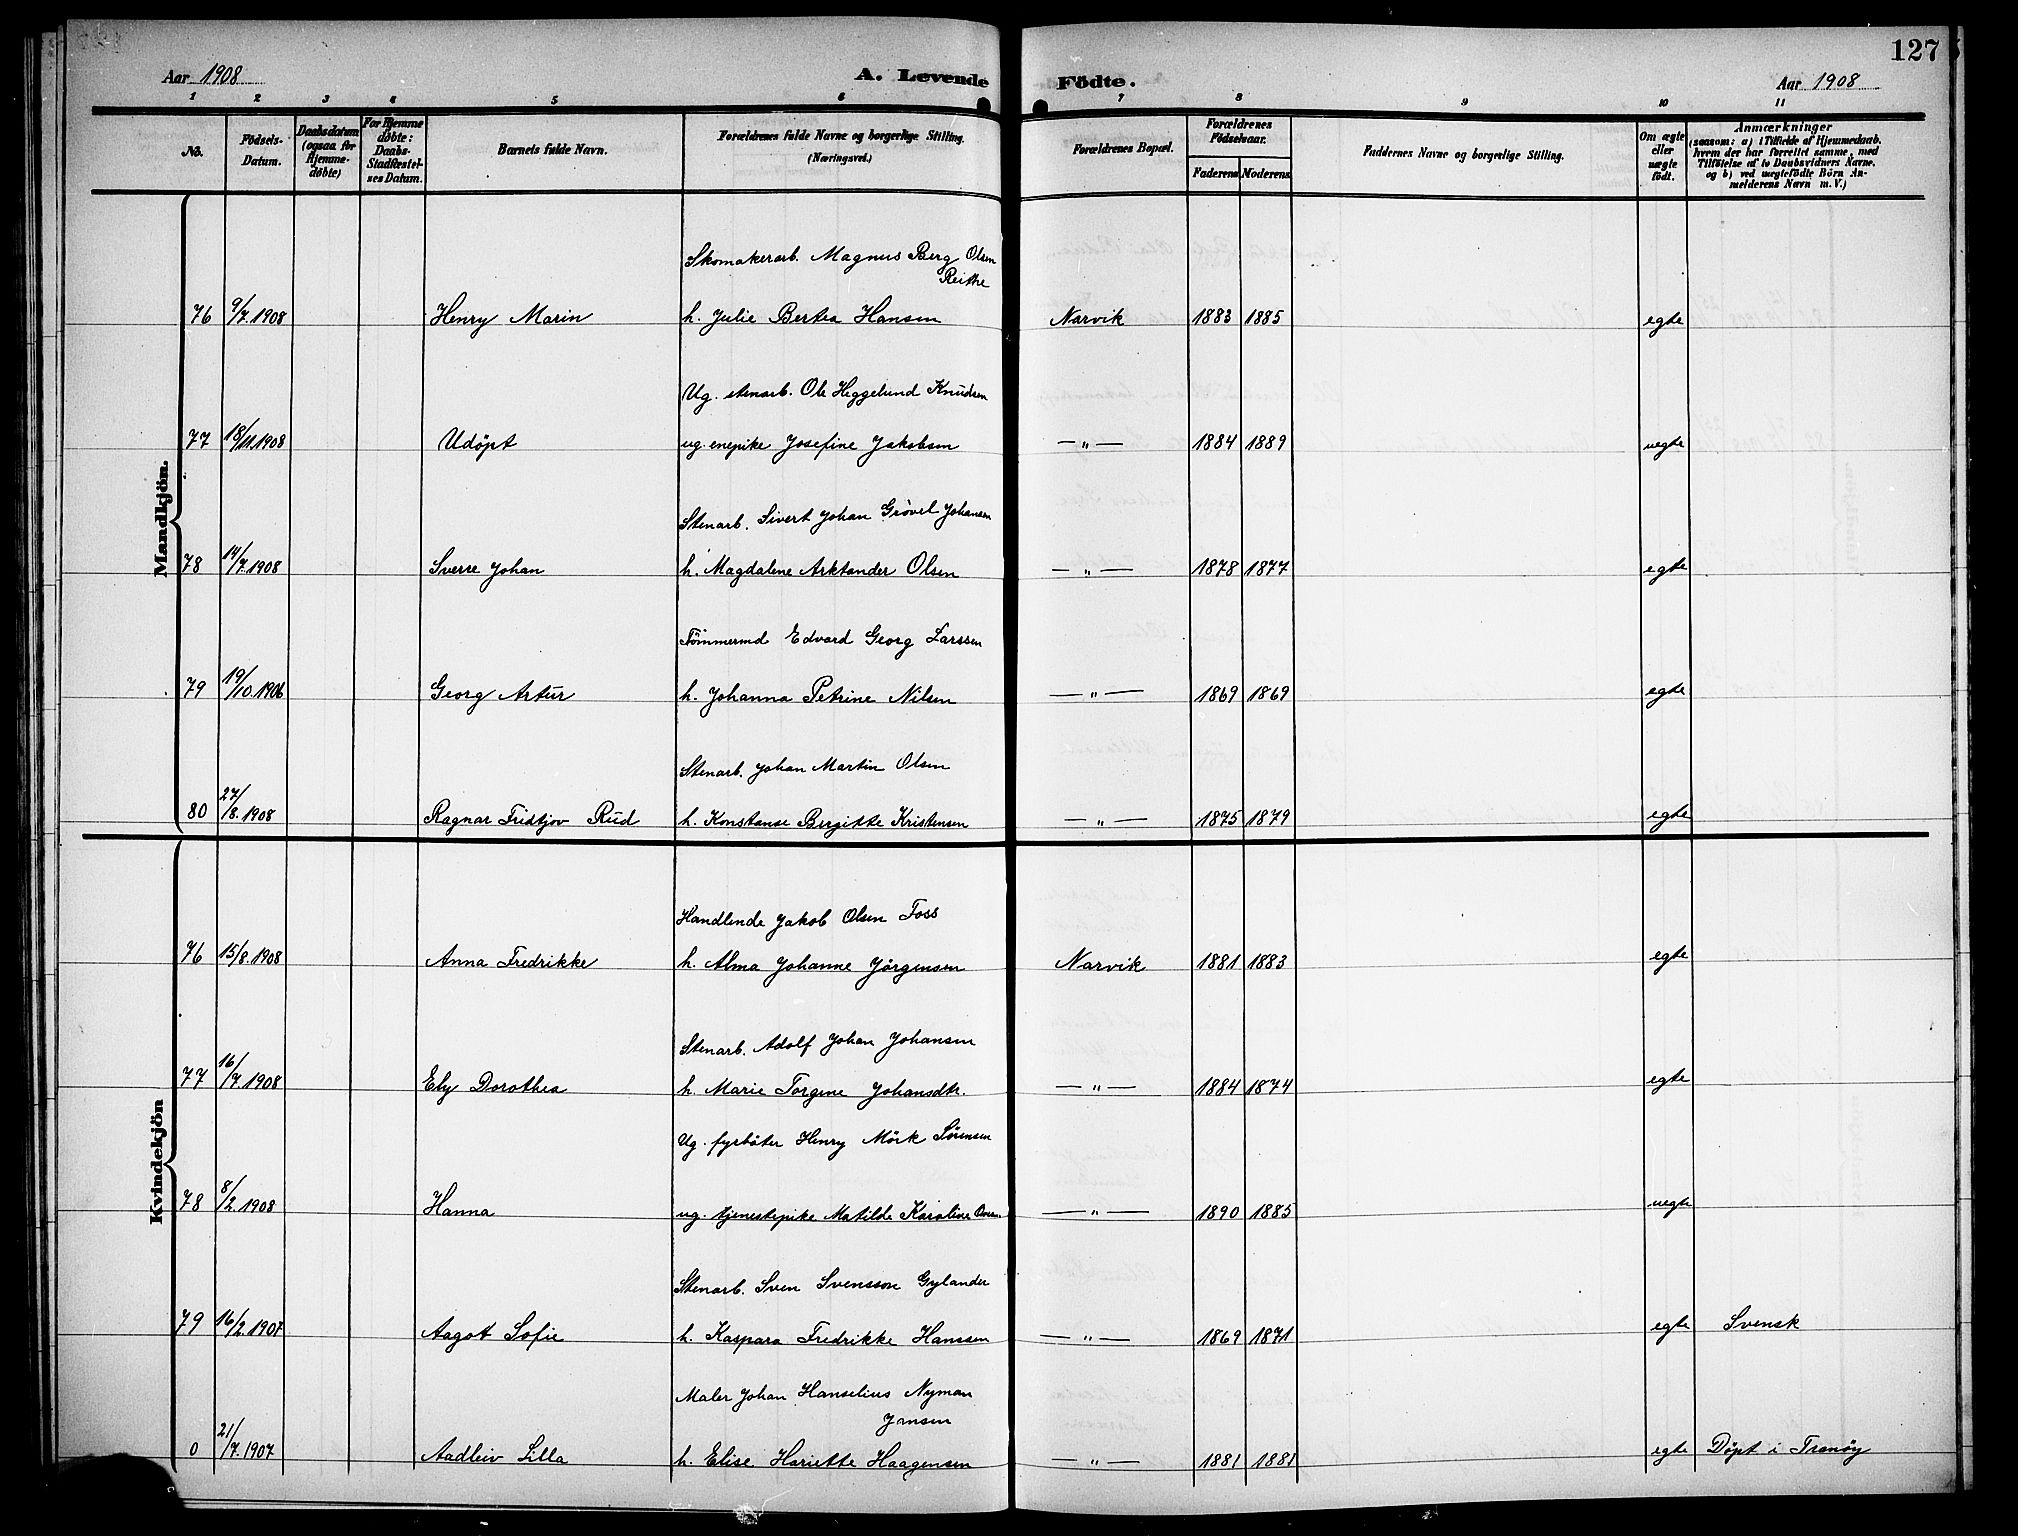 127
Aar 1908
A. Levende Födte.
Aar 1908
1 2 3 4 5 6 7 8 9 10 11
No.
Födsels-
Datum.
Daabsdatum
(ogsaa for
Hjemme-
døbte)
For Hjemme
døbte:
Daabs-
Stadfæstel-
ses Datum.
Barnets fulde Navn.
Forældrenes fulde Navne og borgerlige Stilling.
(Næringsvei.)
Forældrenes Bopæl.
Forældrenes
Födselsaar.
Faderens Moderens
Faddernes Navne og borgerlige Stilling.
Om ægte
eller
uægte
født.
Anmærkninger
(saasom: a) i Tilfælde af Hjemmedaab.
hvem der har forrettet samme, med
Tilföielse af to Daabsvidners Navne.
og b) ved uægtefödte Börn An-
melderens Navn m. V.)
Mandkjön.
Skomakerarb. Magnus Berg Olsen
Reithe
76 9/7.1908 Henry Marin h. Julie Bertea Hansen Narvik 1883 1885 egte
Ug. stenarb. Ole Heggelund Knudsen
77 18/11.1908 Udöpt ug. enepike Josefine Jakobsen — " — 1884 1889 uegte
Stenarb. Sivert Johan Grövel Johansen
78 14/7.1908 Sverre Johan h. Magdalene Arktander Olsen — " — 1878 1877 egte
Tömmermd Edvard Georg Larssen
79 19/10.1906 Georg Artur h. Johanna Petrine Nilsen — " — 1869 1869 egte
Stenarb. Johan Martin Olsen
80 27/8.1908 Ragnar Fridtjov Rud h. Konstanse Birgitte Kristensen — " — 1875 1879 egte
Kvindekjön
Handlende Jakob Olsen Foss
76 15/8.1908 Anna Fredrikke h. Alma Johanne Jörgensen Narvik 1881 1883 egte
Stenarb. Adolf Johan Johansen
77 16/7.1908 Ely Dorothea h. Marie Torgine Johansdtr. — " — 1884 1874 egte
Ug. fyrböter Henry Mörk Sörensen
78 8/2.1908 Hanna ug. tjenestepike Matilde Karoline — " — 1890 1885 uegte
Stenarb. Sven Svensson Gylander
79 16/2.1907 Aagot Sofie h. Kaspara Fredrikke Hanssen — " — 1869 1871 egte Svensk
Maler Johan Hanselius Nyman
Jensen
0 21/7.1907 Aadleiv Lilla h. Elise Hariette Haagensen — " — 1881 1881 egte Döpt i Tranöy